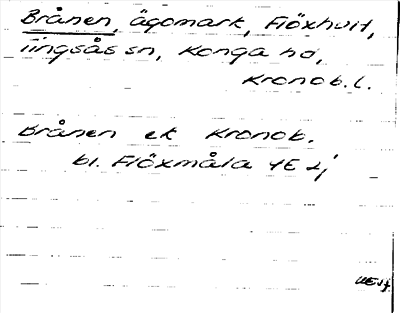 Brånen, ägomark, Flöxhult,
Tingsås sn, Konga hd,
Kronob. l.
Brånen ek Kronob.
bl. Flöxmåla 4E 2j